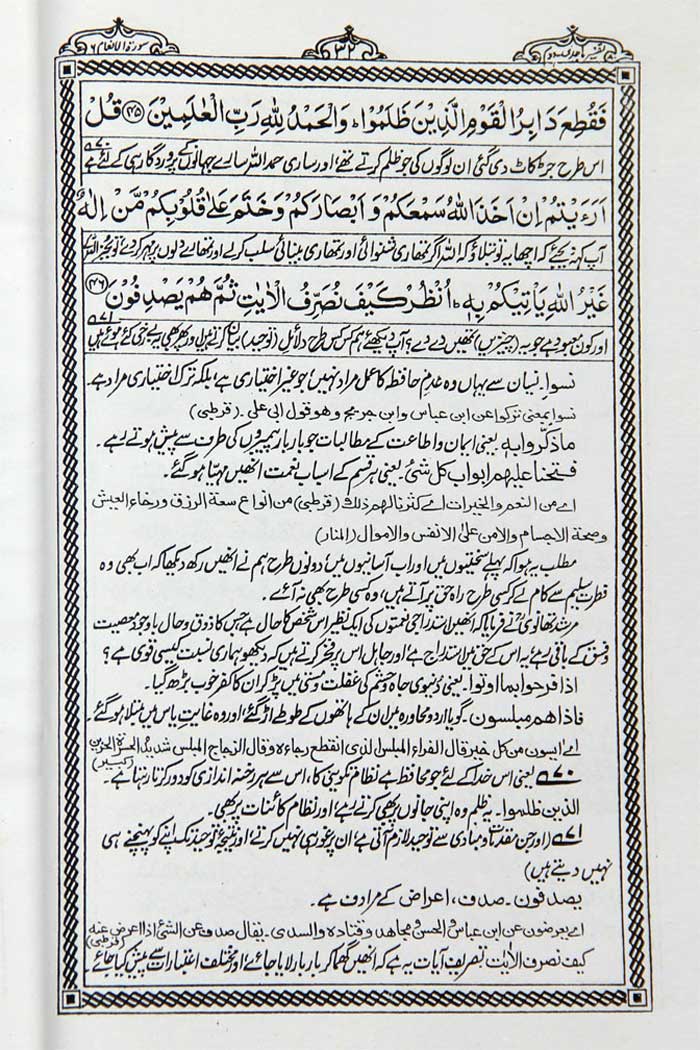 سورۃ الانعام ۶
۳۲
تفسیر ماجدی، دوم
فَقُطِعَ دَابِرُ الْقَوْمِ الَّذِیْنَ ظَلَمُوْا ؕ وَالْحَمْدُ لِلّٰهِ رَبِّ الْعٰلَمِیْنَ ﴿۴۵﴾ قُلْ
اس طرح جڑ کاٹ دی گئی ان لوگوں کی جو ظلم کرتے تھے، اور ساری حمد اللہ سارے جہانوں کے پروردگار ہی کے لئے ہے ۷۰
اَرَءَیْتُمْ اِنْ اَخَذَ اللّٰهُ سَمْعَكُمْ وَ اَبْصَارَكُمْ وَخَتَمَ عَلٰی قُلُوْبِكُمْ مَّنْ اِلٰهٌ
آپ کہہ دیجئے کہ اچھا یہ تو بتلاؤ کہ اللہ اگر تمھاری شنوائی اور تمھاری بینائی سلب کرلے اور تمھارے دلوں پر مہر کردے، تو بجز اللہ کے
غَیْرُ اللّٰهِ یَاْتِیْكُمْ بِهٖ ؕ اُنْظُرْ كَیْفَ نُصَرِّفُ الْاٰیٰتِ ثُمَّ هُمْ یَصْدِفُوْنَ ﴿۴۶﴾
اور کون معبود ہے جو یہ (چیزیں) تمھیں دے دے؟ آپ دیکھئے ہم کس کس طرح دلائل (توحید) بیان کرتے ہیں اور پھر بھی یہ بے رخی کئے ہوئے ہیں ۷۱
نسوا۔ نسیان سے یہاں وہ عدم حافظہ کا عمل مراد نہیں، جو غیر اختیاری ہے، بلکہ ترک اختیاری مراد ہے۔
نسوا بمعنی ترکوا عن ابن عباس وابن جریج وهو قول ابی علی۔ (قرطبی)
ما ذکروا بہ یعنی ایمان و اطاعت کے مطالبات جو بار بار پیمبروں کی طرف سے پیش ہوتے رہے۔
فتحنا علیھم ابواب کل شئ۔ یعنی ہر قسم کے اسباب نعمت انھیں مہیا ہوگئے۔
اے من النعم والخیرات اے کثرنا لهم ذلك (قرطبی) من انواع سعة الرزق ورخاء العیش
وصحة الاجسام والامن علی الانفس والاموال (المنار)
مطلب یہ ہوا کہ پہلے سختیوں میں اور اب آسانیوں میں، دونوں طرح ہم نے انھیں رکھ دیکھا کہ اب بھی وہ
فطرت سلیم سے کام لے کر کسی طرح راہ حق پر آتے ہیں، وہ کسی طرح بھی نہ آئے۔
مرشد تھانویؒ نے فرمایا کہ انھیں استدراجی نعمتوں کی ایک نظیر اس شخص کا حال ہے جس کا ذوق و حال باوجود معصیت
و فسق کے باقی رہے، یہ اس کے حق میں استدراج ہے، اور جاہل اس پر فخر کرتے ہیں کہ دیکھو ہماری نسبت کیسی قوی ہے؟
اذا فرحوا بما اوتوا۔ یعنی دنیوی جاہ وحشم کی غفلت و مستی میں پڑ کر ان کا کفر خوب بڑھ گیا۔
فاذا ھم مبلسون۔ گویا اردو محاورہ میں ان کے ہاتھوں کے طوطے اڑ گئے، اور وہ غایت یاس میں مبتلا ہوگئے۔
اے ایسون من کل خیر قال الفراء المبلس الذی انقطع رجاءہ وقال الزجاج المبلس شدید الحسرة الحزین (کبیر)
۷۰ یعنی اس خدا کے لئے جو محافظ ہے نظام تکوینی کا، اس سے ہر رخنہ اندازی کو دور کرتا رہتا ہے۔
الذین ظلموا۔ یہ ظلم وہ اپنی جانوں پر بھی کرتے رہے، اور نظام کائنات پر بھی۔
۷۱ (اور جن مقدمات و مبادی سے توحید لازم آتی ہے، ان پر غور ہی نہیں کرتے، اور نتیجۂ توحید تک اپنے کو پہنچنے ہی
نہیں دیتے ہیں)
یصدفون۔ صدف، اعراض کے مرادف ہے۔
اے یعرضون عن ابن عباس والحسن ومجاهد وقتادة والسدی۔ یقال صدف عن الشئ اذا اعرض عنه (قرطبی)
کیف نصرف الاٰیٰت تصریف آیات یہ ہے کہ انھیں گھما کر بار بار لایا جائے، اور مختلف اعتبارات سے پیش کیا جائے۔